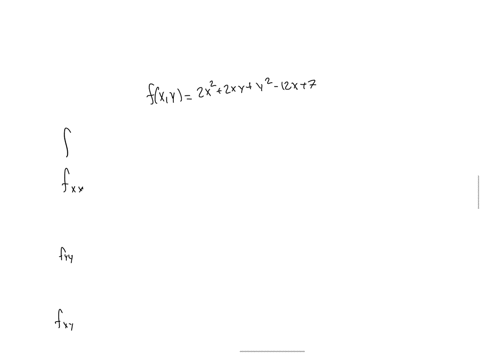 f(x,y) = 2x² + 2xy + y² - 12x + 7
∫
fxx
fyy
fxy